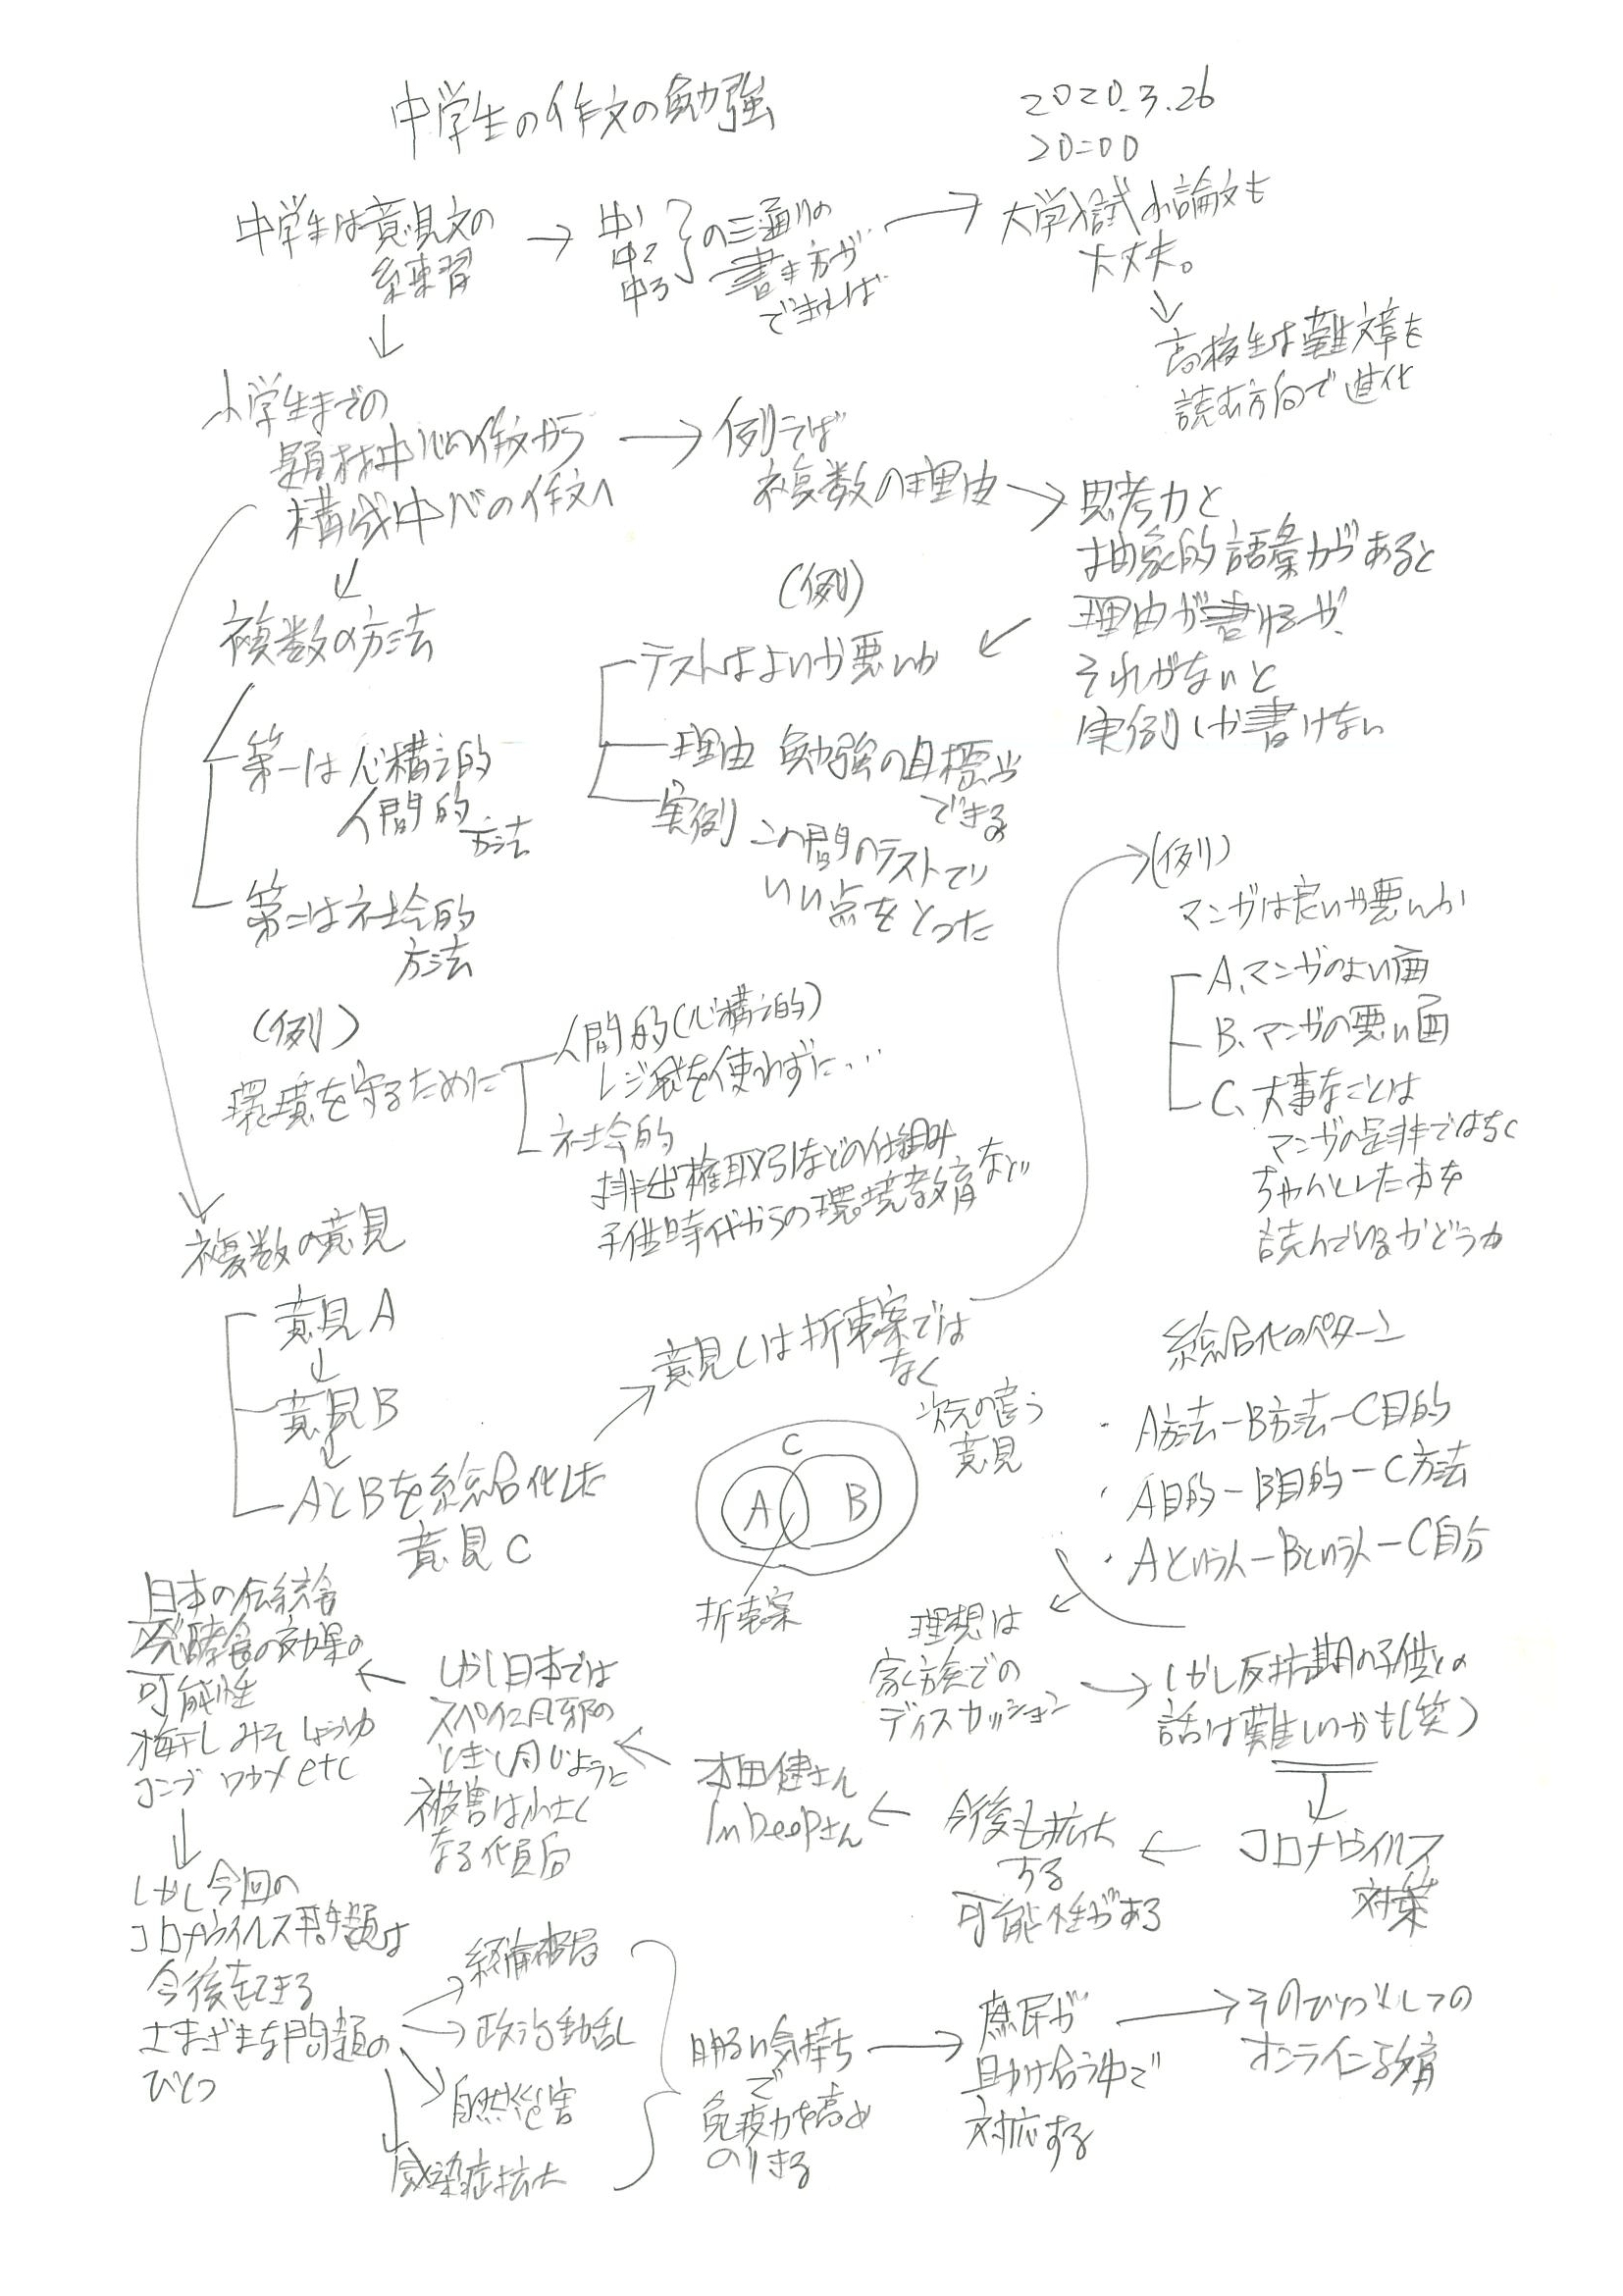 中学生の作文の勉強
2020.3.26
20:00
中学生は意見文の
練習
→
中1
中2
中3
の三通りの
書き方が
できれば
→
大学入試小論文も
大丈夫。
↓
高校生は難文章を
読む方向で進化
↓
小学生までの
題材中心の作文から
構成中心の作文へ
→
例えば
複数の理由
→
思考力と
抽象的語彙力があると
理由が書けるが、
それがないと
実例しか書けない
(例)
テストはよいか悪いか
理由 勉強の目標が
できる
実例 この間のテストで
いい点をとった
↓
複数の方法
第一は心構え的
人間的
方法
第二は社会的
方法
(例)
環境を守るために
人間的(心構え的)
レジ袋を使わずに…
社会的
排出権取引などの仕組み
子供時代からの環境教育など
複数の意見
意見A
↓
意見B
↓
AとBを総合化した
意見C
意見Cは折衷案では
なく
次元の違う
意見
C
A
B
折衷案
(例)
マンガは良いか悪いか
A、マンガのよい面
B、マンガの悪い面
C、大事なことは
マンガの是非ではなく
ちゃんとした本を
読んでいるかどうか
総合化のパターン
・A方法ーB方法ーC目的
・A目的ーB目的ーC方法
・Aという人ーBという人ーC自分
理想は
家族での
ディスカッション
→
しかし反抗期の子供との
話は難しいかも(笑)
↓
コロナウイルス
対策
←
今後も拡大
する
可能性がある
←
本田健さん
InDeepさん
←
しかし日本では
スペイン風邪の
ときと同じように
被害は小さく
なる傾向
←
日本の伝統食
発酵食の効果の
可能性
梅干し みそ しょうゆ
コンブ ワカメ etc
↓
しかし今回の
コロナウイルス問題は
今後起きる
さまざまな問題の
ひとつ
経済破局
政治動乱
自然災害
感染症拡大
明るい気持ち
で
免疫力を高め
のりきる
→
庶民が
助け合う中で
対応する
→
そのひとつとしての
オンライン教育